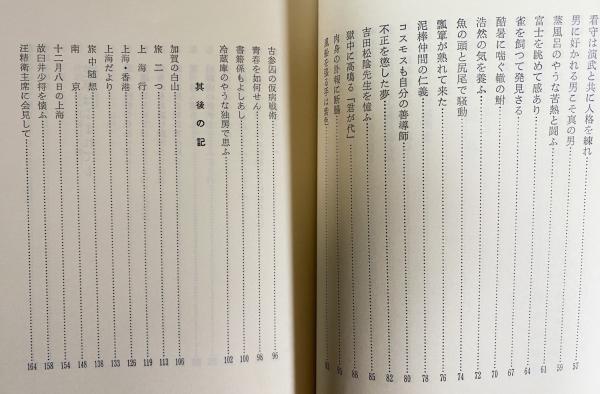 看守は演武と共に人格を練れ……57
男に好かれる男こそ真の男……59
蒸風呂のやうな苦熱と闘ふ……61
富士を眺めて感あり……64
雀を飼つて発見さる……67
酷暑に喘ぐ轍の鮒……70
浩然の気を養ふ……72
魚の頭と尻尾で騒動……74
瓢箪が熟れて来た……76
泥棒仲間の仁義……78
コスモスも自分の善導師……80
不正を懲した夢……82
吉田松陰先生を憶ふ……85
獄中に高鳴る「君が代」……88
肉身の訃報に断腸……
風船を張る手は紫色……93
古参囚の仮病戦術……96
青春を如何せん……98
書籍係もよしあし……100
冷蔵庫のやうな独房で思ふ……102
其後の記
加賀の白山……106
旅二つ……113
上海行……119
上海・香港……126
上海だより……133
旅中随想……138
南京……148
十二月八日の上海……154
故臼井少将を懐ふ……158
汪精衛主席に会見して……164